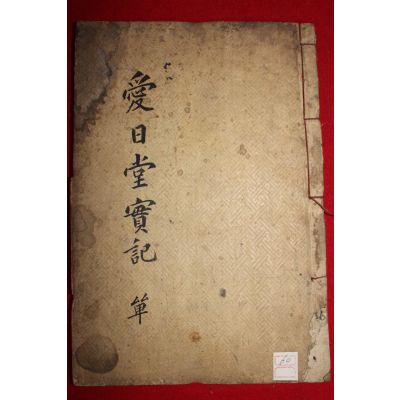 愛日堂實記 單